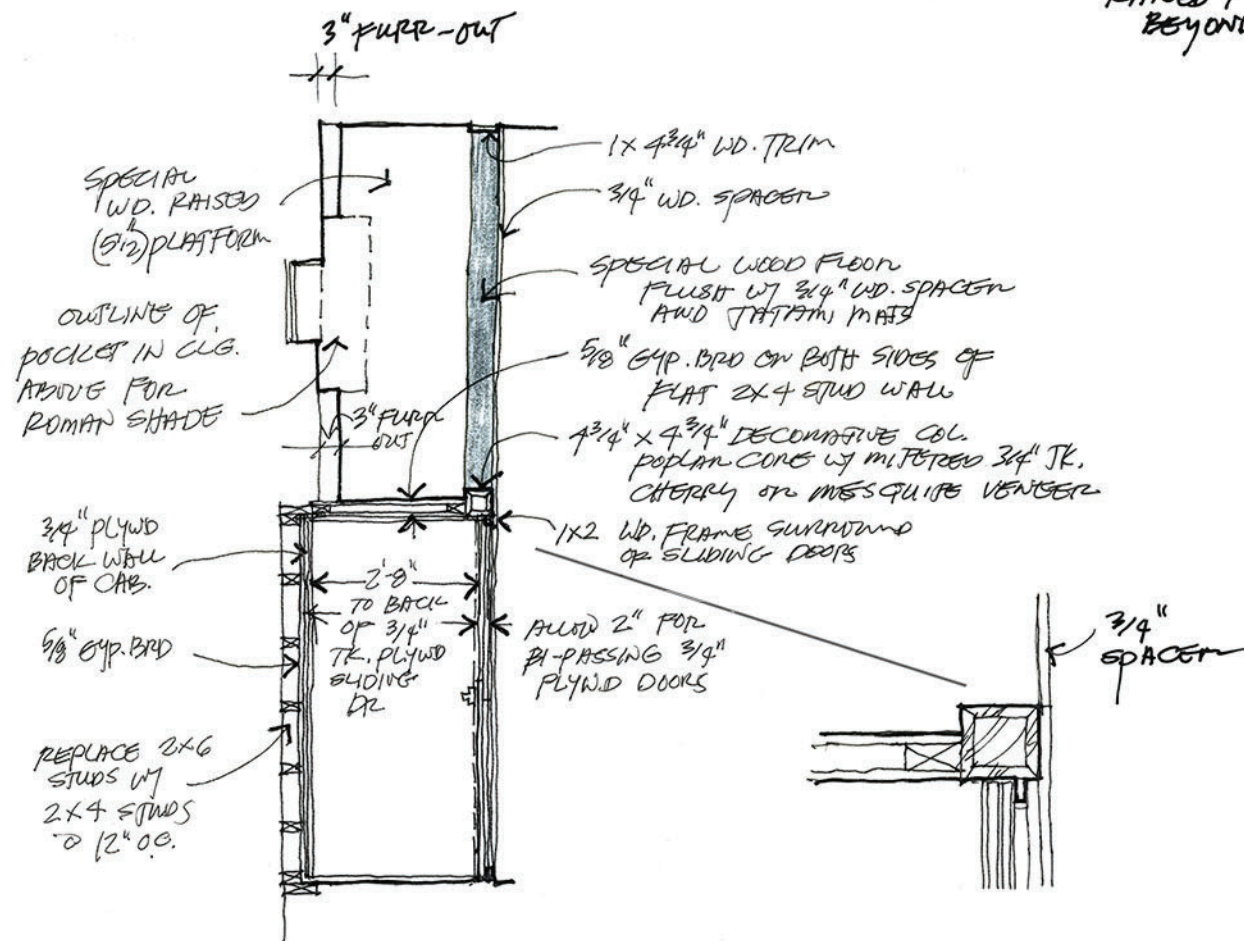 3" FURR-OUT
BEYOND
SPECIAL
WD. RAISED
(5 1/2") PLATFORM
OUTLINE OF
POCKET IN CLG.
ABOVE FOR
ROMAN SHADE
3" FURR
OUT
1 X 4 3/4" WD. TRIM
3/4" WD. SPACER
SPECIAL WOOD FLOOR
FLUSH W/ 3/4" WD. SPACER
AND TATAMI MATS
5/8" GYP. BRD ON BOTH SIDES OF
FLAT 2X4 STUD WALL
4 3/4" X 4 3/4" DECORATIVE COL.
POPLAR CORE W/ MITERED 3/4" TK.
CHERRY OR MESQUITE VENEER
1X2 WD. FRAME SURROUND
OF SLIDING DOORS
3/4" PLYWD
BACK WALL
OF CAB.
5/8" GYP. BRD
REPLACE 2X6
STUDS W/
2X4 STUDS
@ 12" O.C.
2'-8"
TO BACK
OF 3/4"
TK. PLYWD
SLIDING
DR
ALLOW 2" FOR
BI-PASSING 3/4"
PLYWD DOORS
3/4"
SPACER